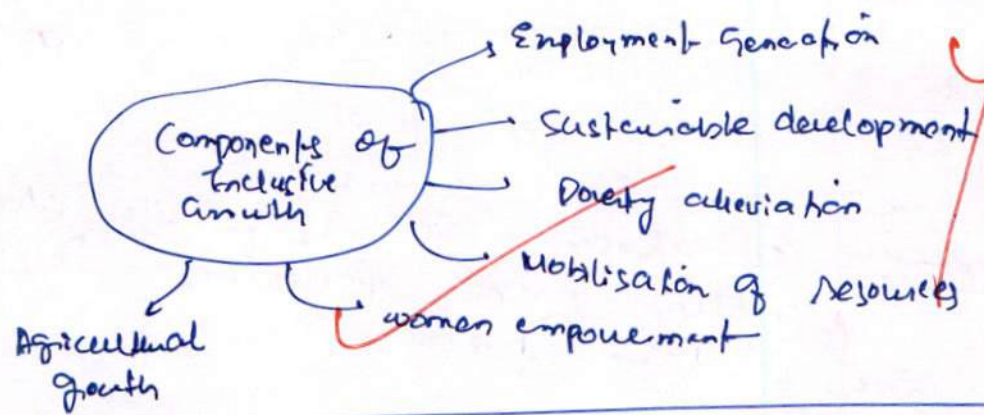 Components of
Inclusive
Growth
Employment Generation
Sustainable development
Poverty alleviation
Mobilisation of resources
women empowerment
Agricultural
growth